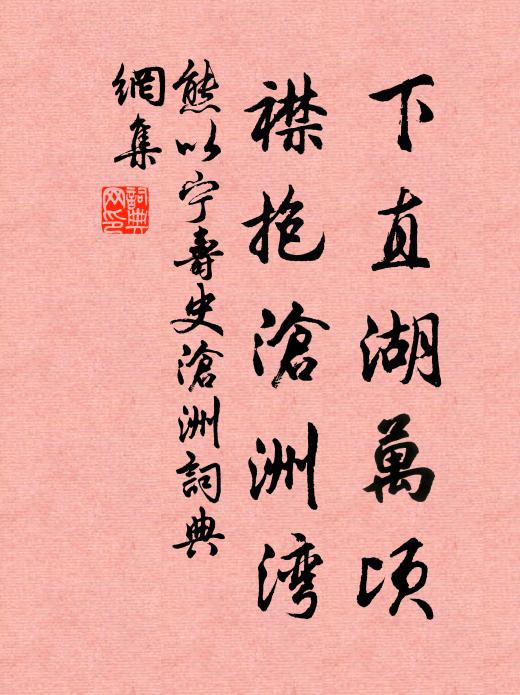 下直湖萬頃
襟抱滄洲湾
熊以宁壽史滄洲詞典
網集
詞典網印